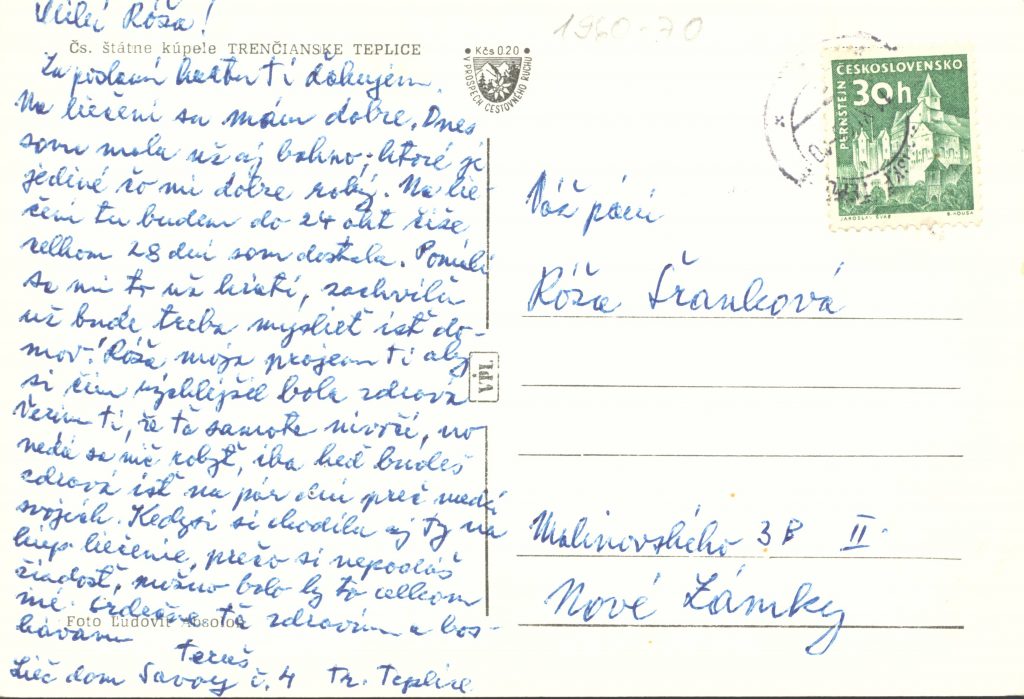 Milá Róža!
Čs. štátne kúpele TRENČIANSKE TEPLICE
Za poslanú kartu ti ďakujem.
Na liečení sa mám dobre. Dnes
som mala už aj bahno, ktoré je
jediné čo mi dobre robý. Na lie-
čení tu budem do 24 okt čiže
celkom 28 dní som dostala. Pomáli
sa mi to už kráti, zachvíľu
už bude treba myslieť isť do-
mov. Róža moja prajem ti aby
si čím rýchlejšie bola zdravá
Verím ti, že ťa samota
nedá sa nič robyť, iba keď budeš
zdravá isť na pár dní preč medzi
svojich. Kedysi si chodila aj ty na
kúp. liečenie, prečo si nepodáš
žiadosť, možno bolo by to celkom
iné. Srdečne ťa zdravím a bos-
kávam
Foto Ľudovít Absolon
Teruš
Lieč dom Savoy č. 4 Tr. Teplice
1960-70
Kčs 0.20
V PROSPECH CESTOVNÉHO RUCHU
VPL
ČESKOSLOVENSKO
30h
PERNŠTEJN
JAROSLAV ŠVÁB
B. HOUSA
Váž pani
Róža Šranková
Malinovského 3B II.
Nové Zámky